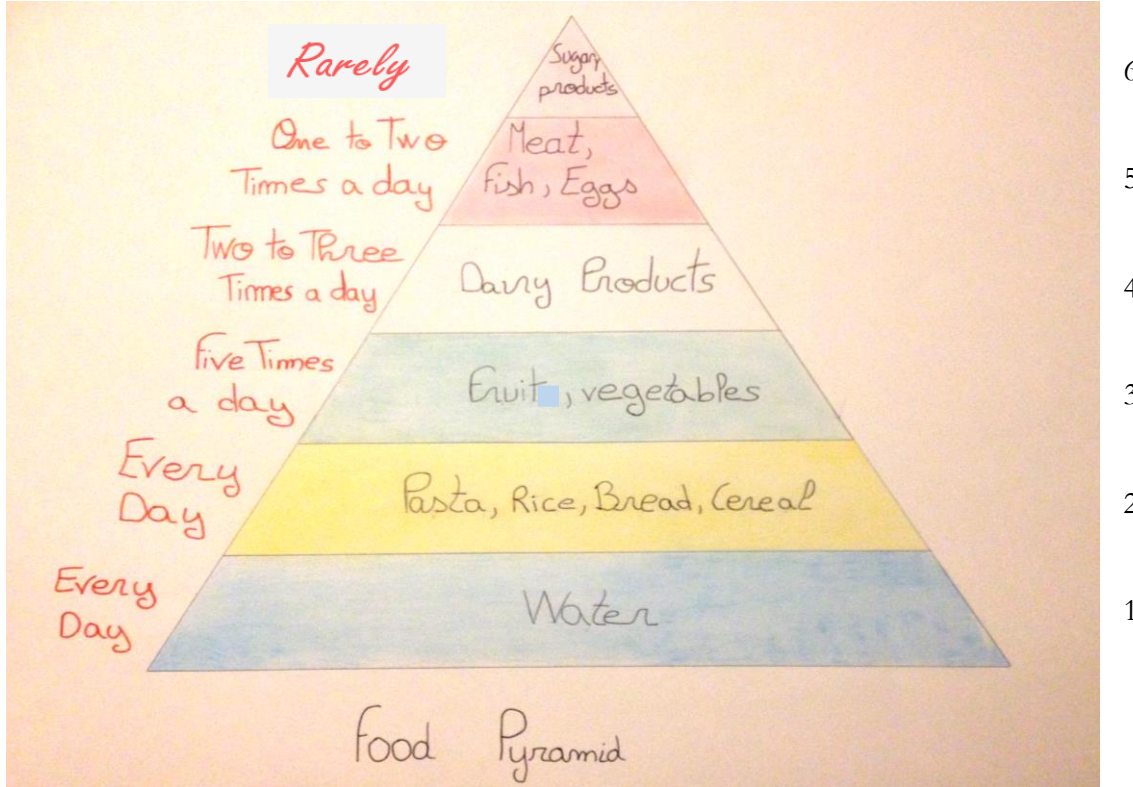 Rarely
Sugary
products
6
One to Two
Times a day
Meat,
Fish, Eggs
5
Two to Three
Times a day
Dairy Products
4
Five Times
a day
Fruit , vegetables
3
Every
Day
Pasta, Rice, Bread, Cereal
2
Every
Day
Water
1
Food Pyramid